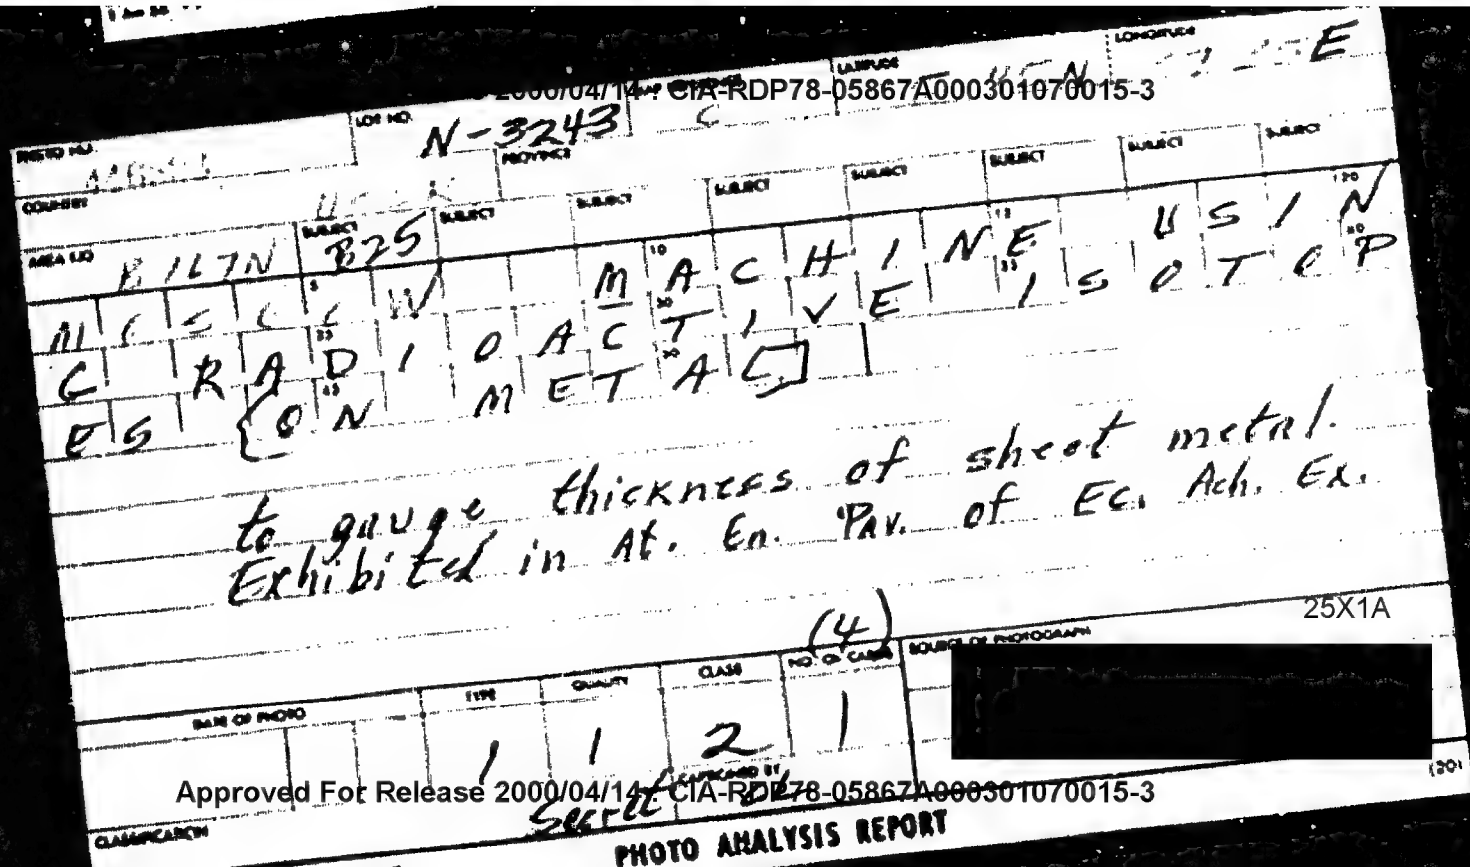 LONGITUDE
LATITUDE
E
N
2000/04/14 : CIA-RDP78-05867A000301070015-3
LOT NO.
N-3243
C
PHOTO NO.
PROVINCE
COUNTRY
SUBJECT SUBJECT SUBJECT SUBJECT SUBJECT SUBJECT SUBJECT SUBJECT
AREA NO
B25
MOSCOW MACHINE USIN
G RADIOACTIVE ISOTOP
ES [ON METAL]
to gauge thickness of sheet metal.
Exhibited in At. En. Pav. of Ec. Ach. Ex.
25X1A
(4)
DATE OF PHOTO TYPE QUALITY CLASS NO. OF CARDS SOURCE OF PHOTOGRAPH
1 1 2 1
Approved For Release 2000/04/14 : CIA-RDP78-05867A000301070015-3
CLASSIFICATION
Secret
(20)
PHOTO ANALYSIS REPORT